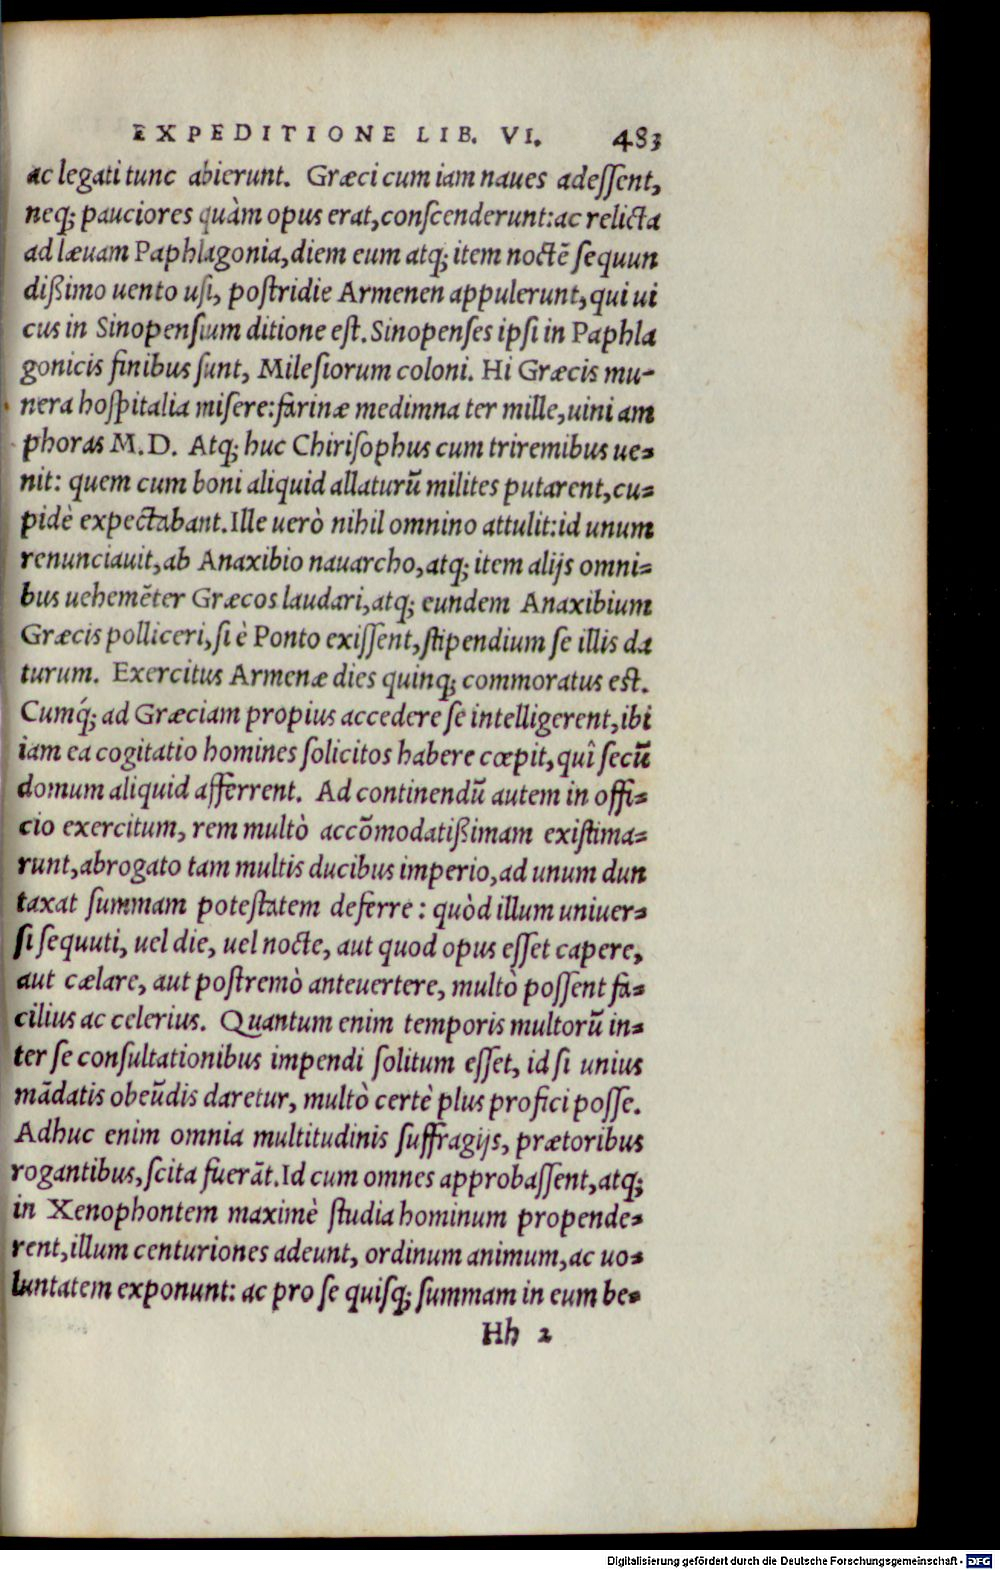 EXPEDITIONE LIB. VI. 483
ac legati tunc abierunt. Græci cum iam naues adeſſent,
neq; pauciores quàm opus erat, conſcenderunt: ac relicta
ad læuam Paphlagonia, diem eum atq; item noctē ſequun
dißimo uento uſi, poſtridie Armenen appulerunt, qui ui
cus in Sinopenſium ditione eſt. Sinopenſes ipſi in Paphla
gonicis finibus ſunt, Mileſiorum coloni. Hi Græcis mu-
nera hoſpitalia miſere: farinæ medimna ter mille, uini am
phoras M.D. Atq; huc Chiriſophus cum triremibus ue-
nit: quem cum boni aliquid allaturū milites putarent, cu-
pidè expectabant. Ille uerò nihil omnino attulit: id unum
renunciauit, ab Anaxibio nauarcho, atq; item alijs omni-
bus uehemēter Græcos laudari, atq; eundem Anaxibium
Græcis polliceri, ſi è Ponto exiſſent, ſtipendium ſe illis da
turum. Exercitus Armenæ dies quinq; commoratus eſt.
Cumq́; ad Græciam propius accedere ſe intelligerent, ibi
iam ea cogitatio homines ſolicitos habere cœpit, quî ſecū
domum aliquid afferrent. Ad continendū autem in offi-
cio exercitum, rem multò accōmodatißimam exiſtima-
runt, abrogato tam multis ducibus imperio, ad unum dun
taxat ſummam poteſtatem deferre: quòd illum uniuer-
ſi ſequuti, uel die, uel nocte, aut quod opus eſſet capere,
aut cælare, aut poſtremò anteuertere, multò poſſent fa-
cilius ac celerius. Quantum enim temporis multorū in-
ter ſe conſultationibus impendi ſolitum eſſet, id ſi unius
mādatis obeūdis daretur, multò certè plus profici poſſe.
Adhuc enim omnia multitudinis ſuffragijs, prætoribus
rogantibus, ſcita fuerāt. Id cum omnes approbaſſent, atq;
in Xenophontem maximè ſtudia hominum propende-
rent, illum centuriones adeunt, ordinum animum, ac uo-
luntatem exponunt: ac pro ſe quiſq; ſummam in eum be-
Hh 2
Digitalisierung gefördert durch die Deutsche Forschungsgemeinschaft - DFG